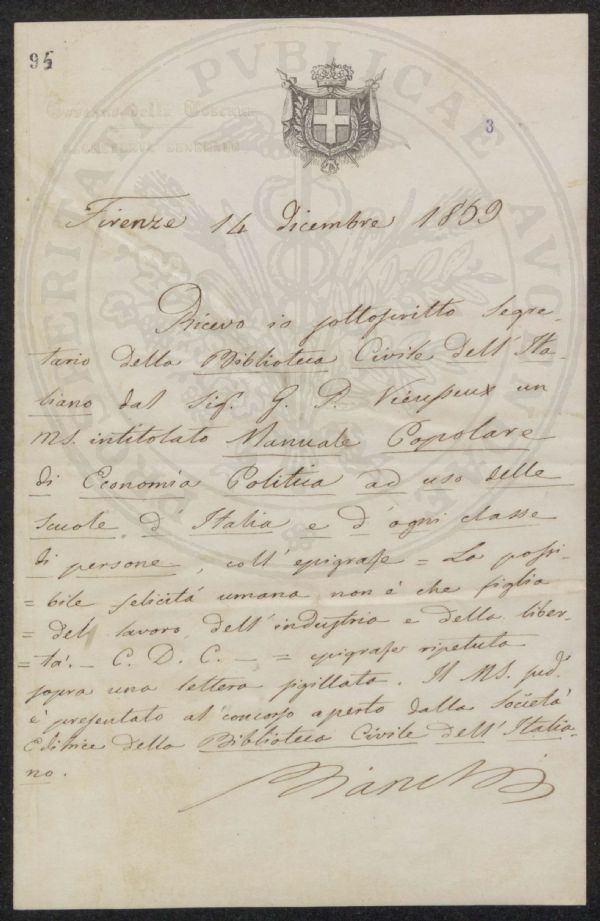 95
3
PROSPERITATI PVBLICAE AVGENDAE
Firenze 14 dicembre 1859
Ricevo io sottoscritto Segre-
tario della Biblioteca Civile dell'Ita-
liano dal Sig. G. P. Vieusseux un
MS. intitolato Manuale Popolare
di Economia Politica ad uso delle
scuole d'Italia e d'ogni classe
di persone, coll'epigrafe = La possi-
= bile felicità umana non è che figlia
= del lavoro, dell'industria e della liber-
= tà. — C. D. C. — = epigrafe ripetuta
sopra una lettera sigillata. Il MS. sud.°
è presentato al concorso aperto dalla Società
Editrice della Biblioteca Civile dell'Italia-
no.
Bianchi